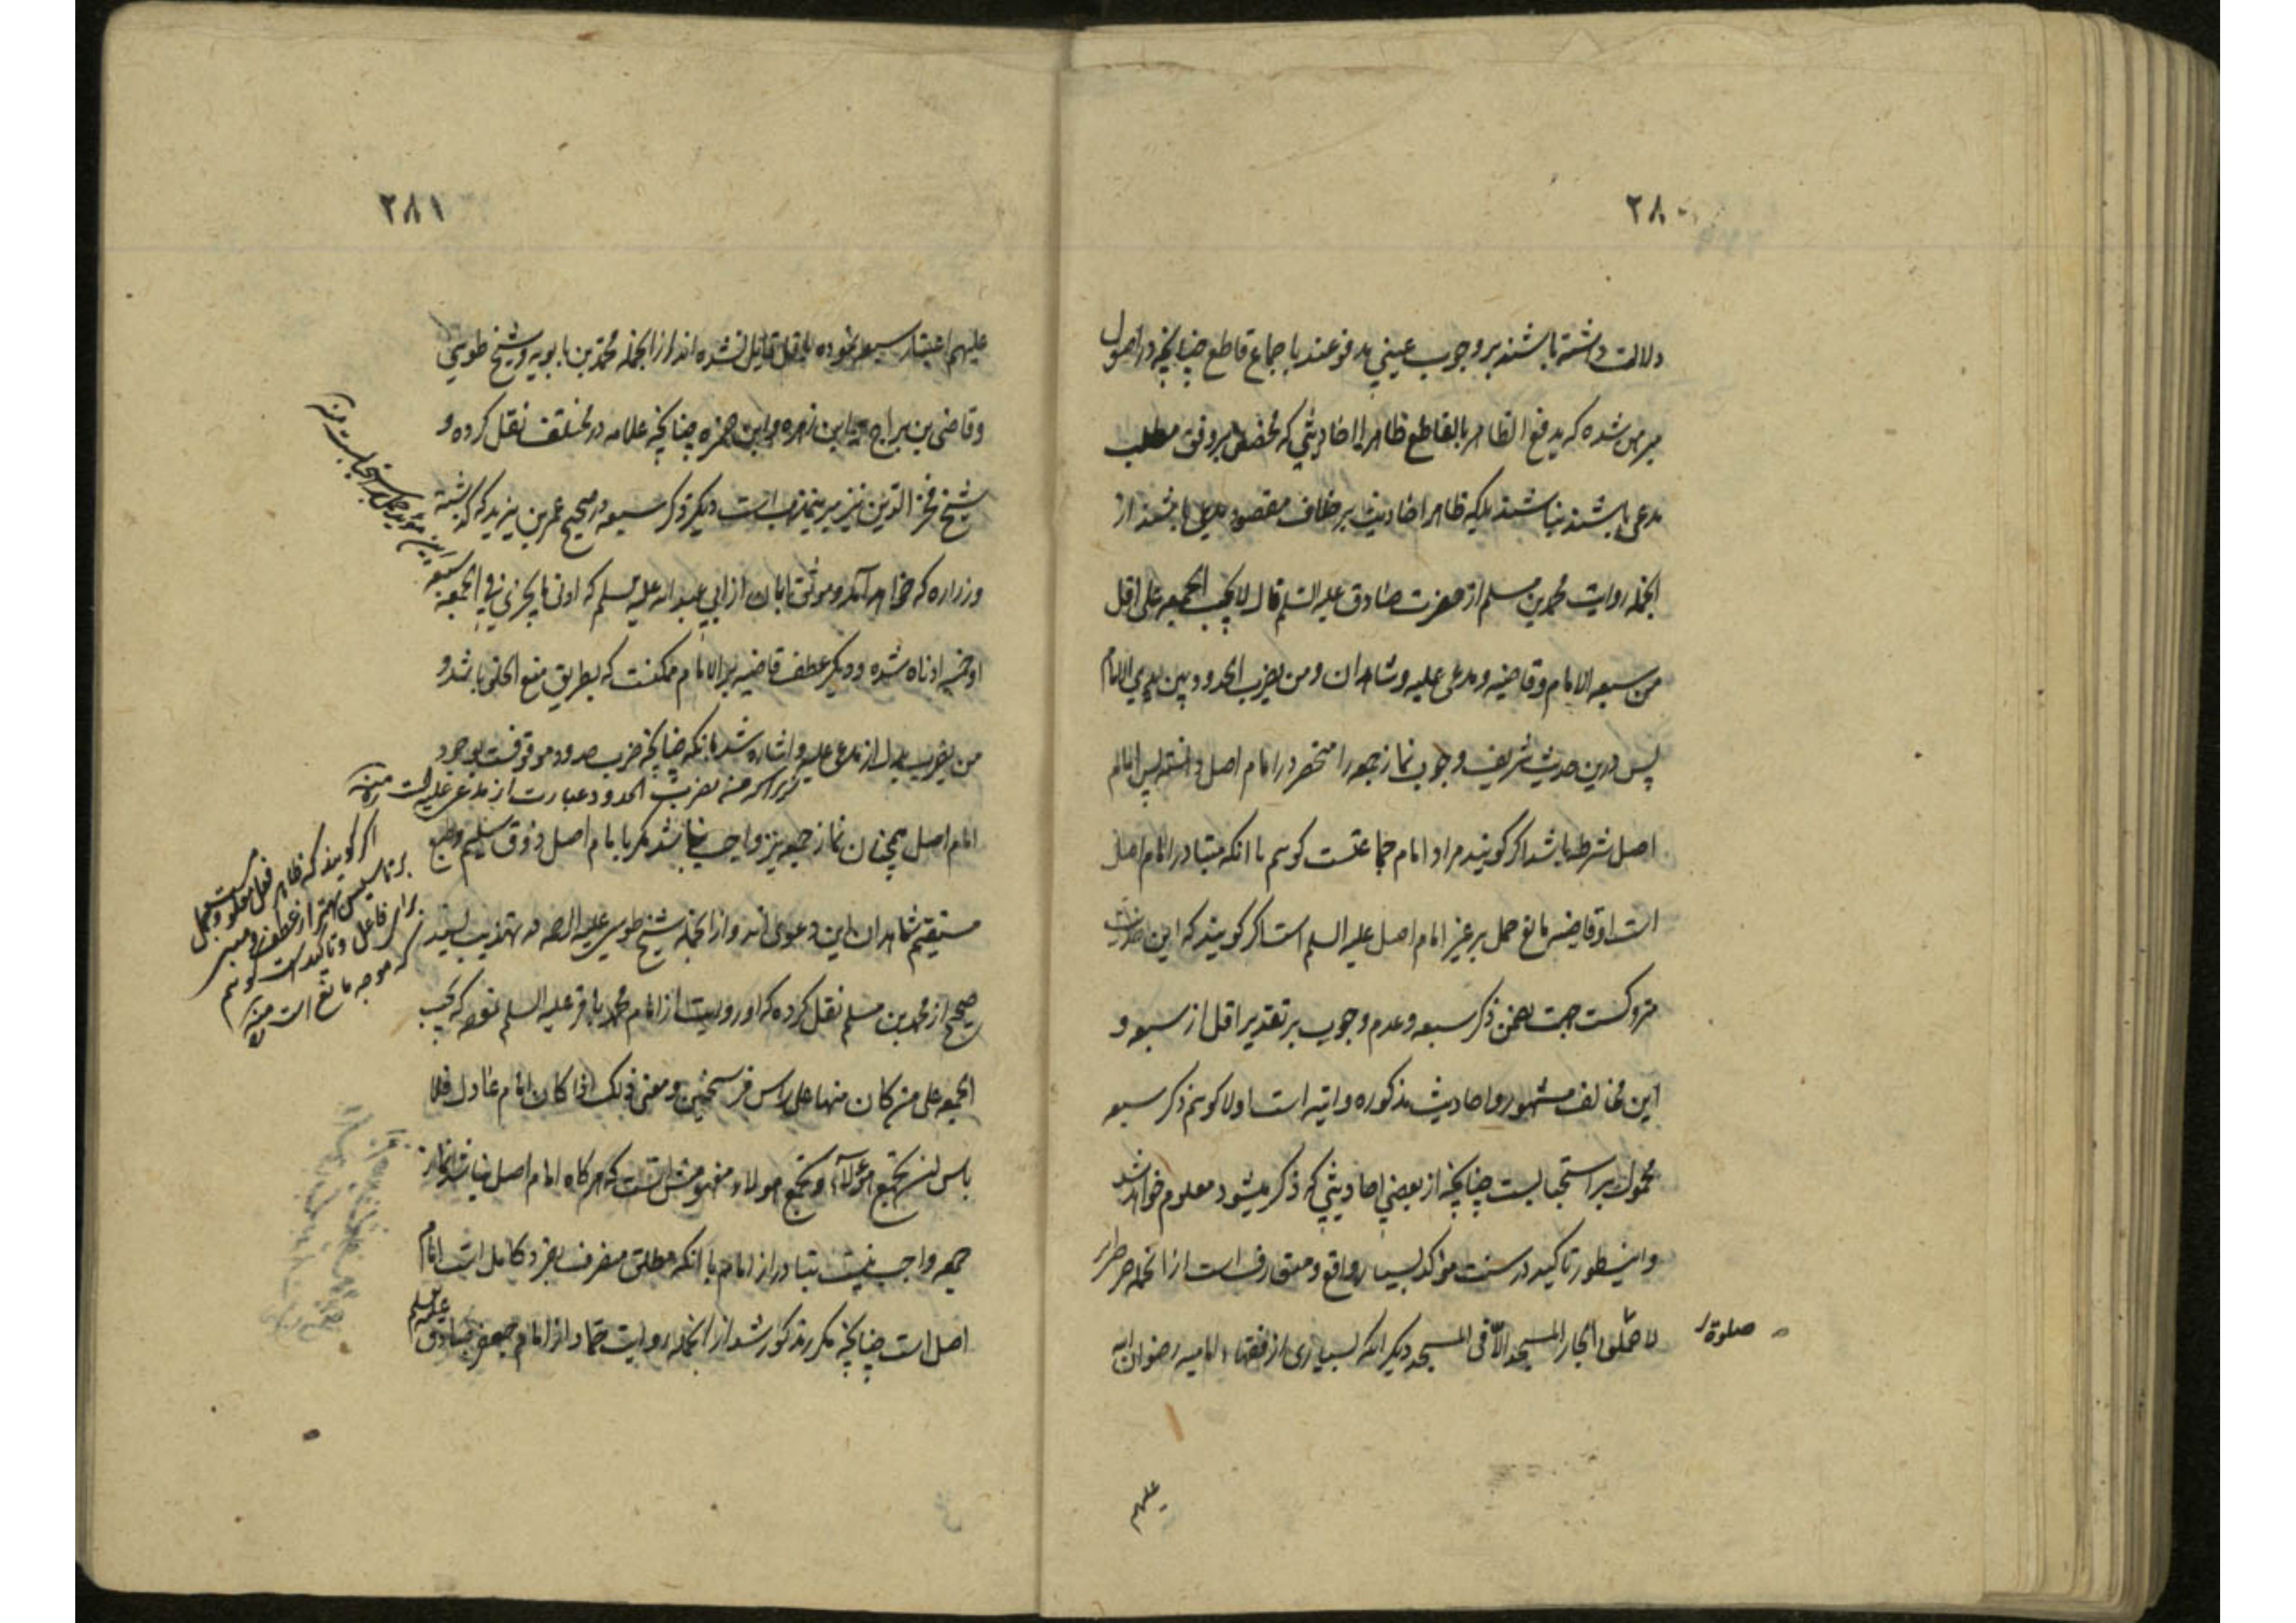 ۲۸۰
دلالت داشته باشند بر وجوب عینی مدفوعند باجماع قاطع چنانچه در اصول
مبرهن شده که یدفع الظاهر بالقاطع ظاهرا احادیثی که محضض بر وفق مطلب
مدعی باشند نباشند بلکه ظاهر احادیث بر خلاف مقصود باشند از
انجمله روایت محمد بن مسلم از حضرت صادق علیه السلم قال لا یجب الجمعه علی اقل
من سبعه الامام و قاضیه و مدعی علیه و شاهدان و من یضرب الحدود بین یدی الامام
پس درین حدیث شریف وجوب نماز جمعه را منحصر در امام اصل دانسته پس امام
اصل شرط باشد اگر گویند مراد امام جماعتست گویم با انکه متبادر امام اصل
است او قاضیه مانع حمل بر غیر امام اصل علیه السلم است اگر گویند که این حدیث
متروکست جهت تضمن ذکر سبعه و عدم وجوب بر تقدیر اقل از سبعه و
این مخالف مشهور و احادیث مذکوره و اتیه است اولا گویم ذکر سبعه
محمول بر استحبابست چنانچه از بعضی احادیثی که ذکر میشود معلوم خواهد شد
و اینطور تاکید در سنت مؤکد بسیار واقع و متعارف است از انجمله
لا صلوة لجار المسجد الا فی المسجد دیگر انکه بسیاری از فقهاء امامیه رضوان الله
صلوة
علیهم
۲۸۱
علیهم اعتبار سبعه نموده باقل قایل نشده اند از انجمله محمد بن بابویه و شیخ طوسی
و قاضی بن براج و ابن زهره و ابن حمزه چنانچه علامه در مختلف نقل کرده و
شیخ فخر الدین نیز برینمذهب است دیگر ذکر سبعه در صحیح عمر بن یزید که گذشته
و زراره که خواهد آمد و موثق ابان از ابی عبد الله علیه السلم که ادنی ما یجزی فی الجمعه سبعه
او خمسه ادناه شده و دیگر عطف قاضیه بر الامام ممکنست که بطریق منع الخلو باشد و
من یضرب بدل از مدعی علیه و اشاره شد بانکه چنانچه ضرب حدود موقوفست بوجود
امام اصل همچنان نماز جمعه نیز واجب نباشد مگر با امام اصل و ذوق سلیم و طبع
مستقیم شاهدان این دعوی اند و از انجمله شیخ طوسی علیه الرحمه در تهذیب بسند
صحیح از محمد بن مسلم نقل کرده که او روایت از امام محمد باقر علیه السلم نموده که یجب
الجمعه علی من کان منها علی راس فرسخین و معنی ذلک اذا کان امام عادل فلا
باس ان یجتمع هؤلاء و یجتمع هولاء و مفهومش انست که هرگاه امام اصل نباشد نماز
جمعه واجب نیست متبادر از امام با انکه مطلق منصرف بفرد کامل است امام
اصل است چنانچه مکرر مذکور شد از انجمله روایت حماد از امام جعفر صادق علیه السلم
من یضرب الحدود عبارت از مدعی علیه است منه
اگر گویند که ظاهر فعل معلوم
برای فاعل و تاکید است گویم
که موجه مانع است منه